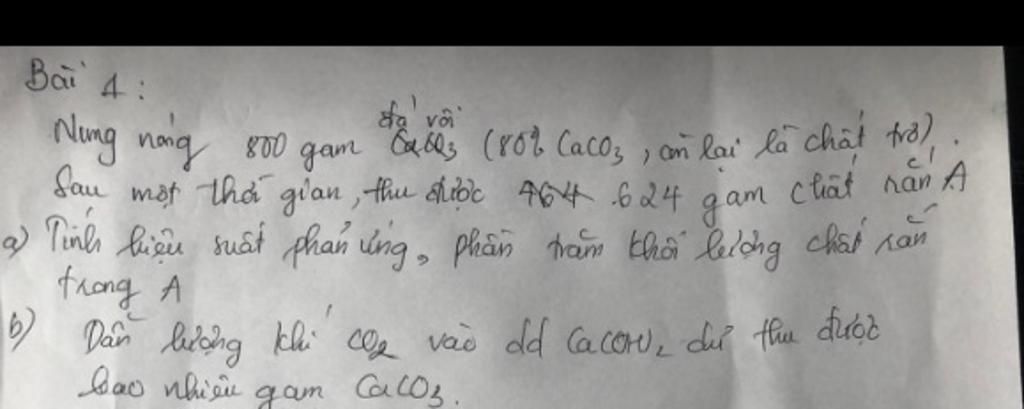 Bài 4:
đá vôi
Nung nóng 800 gam CaCO3 (80% CaCO3, còn lại là chất trơ).
Sau một thời gian, thu được 464 624 gam chất rắn A
a) Tính hiệu suất phản ứng, phần trăm khối lượng chất rắn
trong A
b) Dẫn lượng khí CO2 vào dd Ca(OH)2 dư thu được
bao nhiêu gam CaCO3.